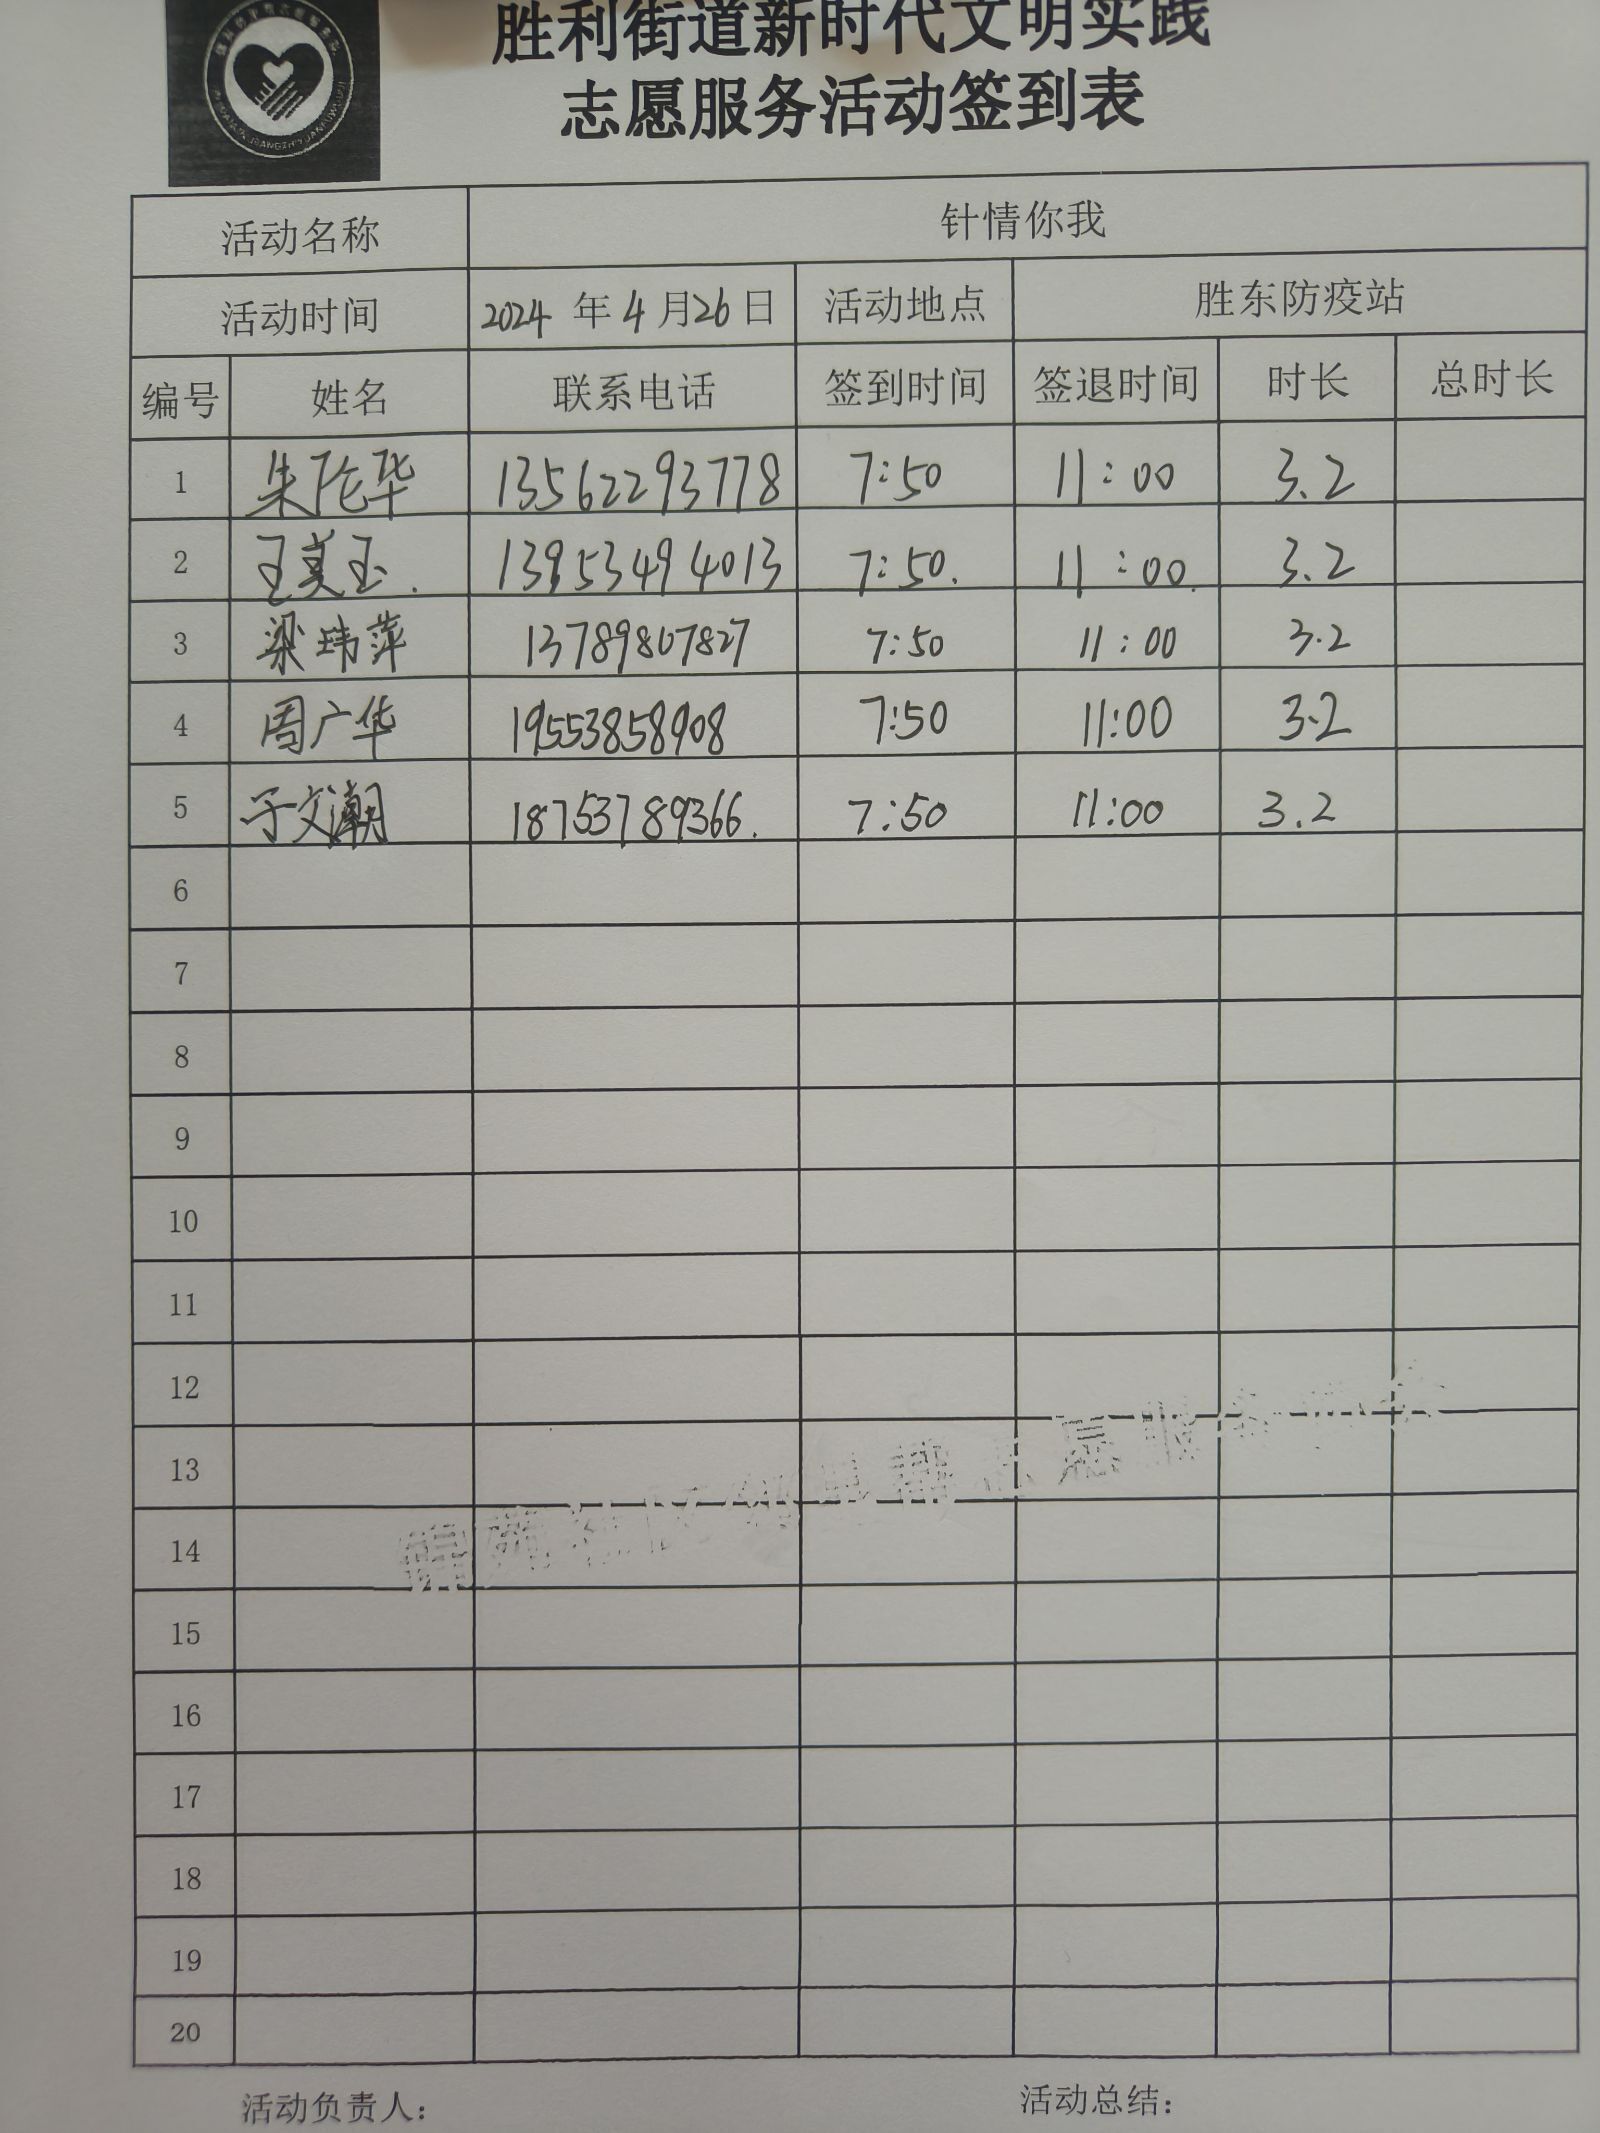 胜利街道新时代文明实践
志愿服务活动签到表
活动名称 针情你我
活动时间 2024 年 4 月 26 日 活动地点 胜东防疫站
编号 姓名 联系电话 签到时间 签退时间 时长 总时长
1 朱伦华 13562293778 7:50 11:00 3.2
2 王美玉. 13953494013 7:50. 11:00. 3.2
3 梁玮萍 13789807827 7:50 11:00 3.2
4 周广华 19553858908 7:50 11:00 3.2
5 于文潮 18753789366. 7:50 11:00 3.2
6
7
8
9
10
11
12
13
14
15
16
17
18
19
20
活动负责人: 活动总结: